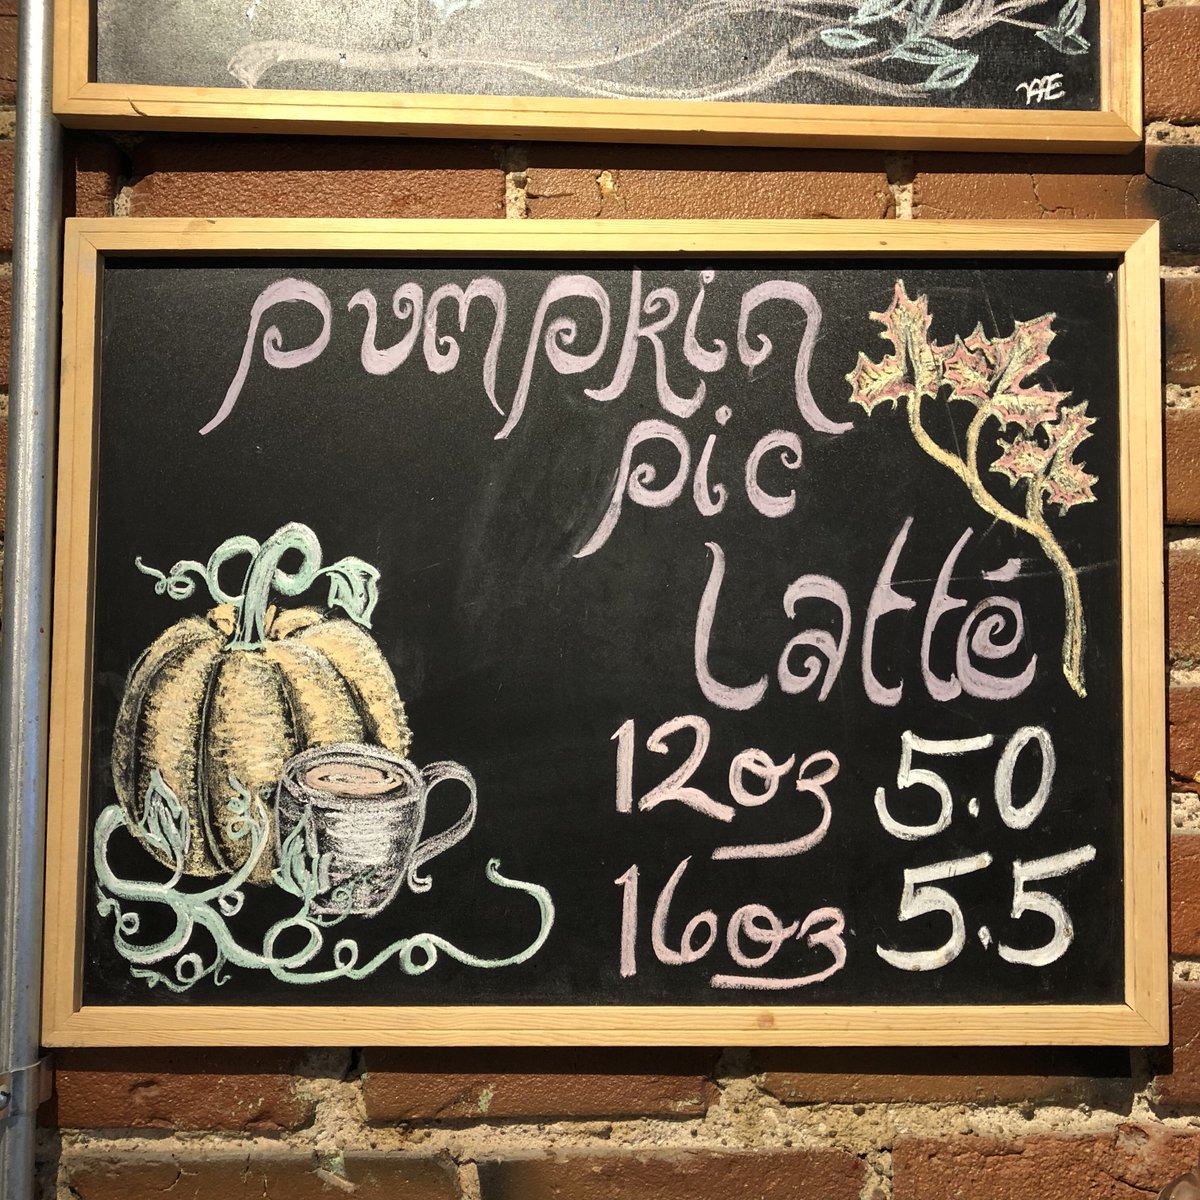 pumpkin
pie
Latté
12oz 5.0
16oz 5.5